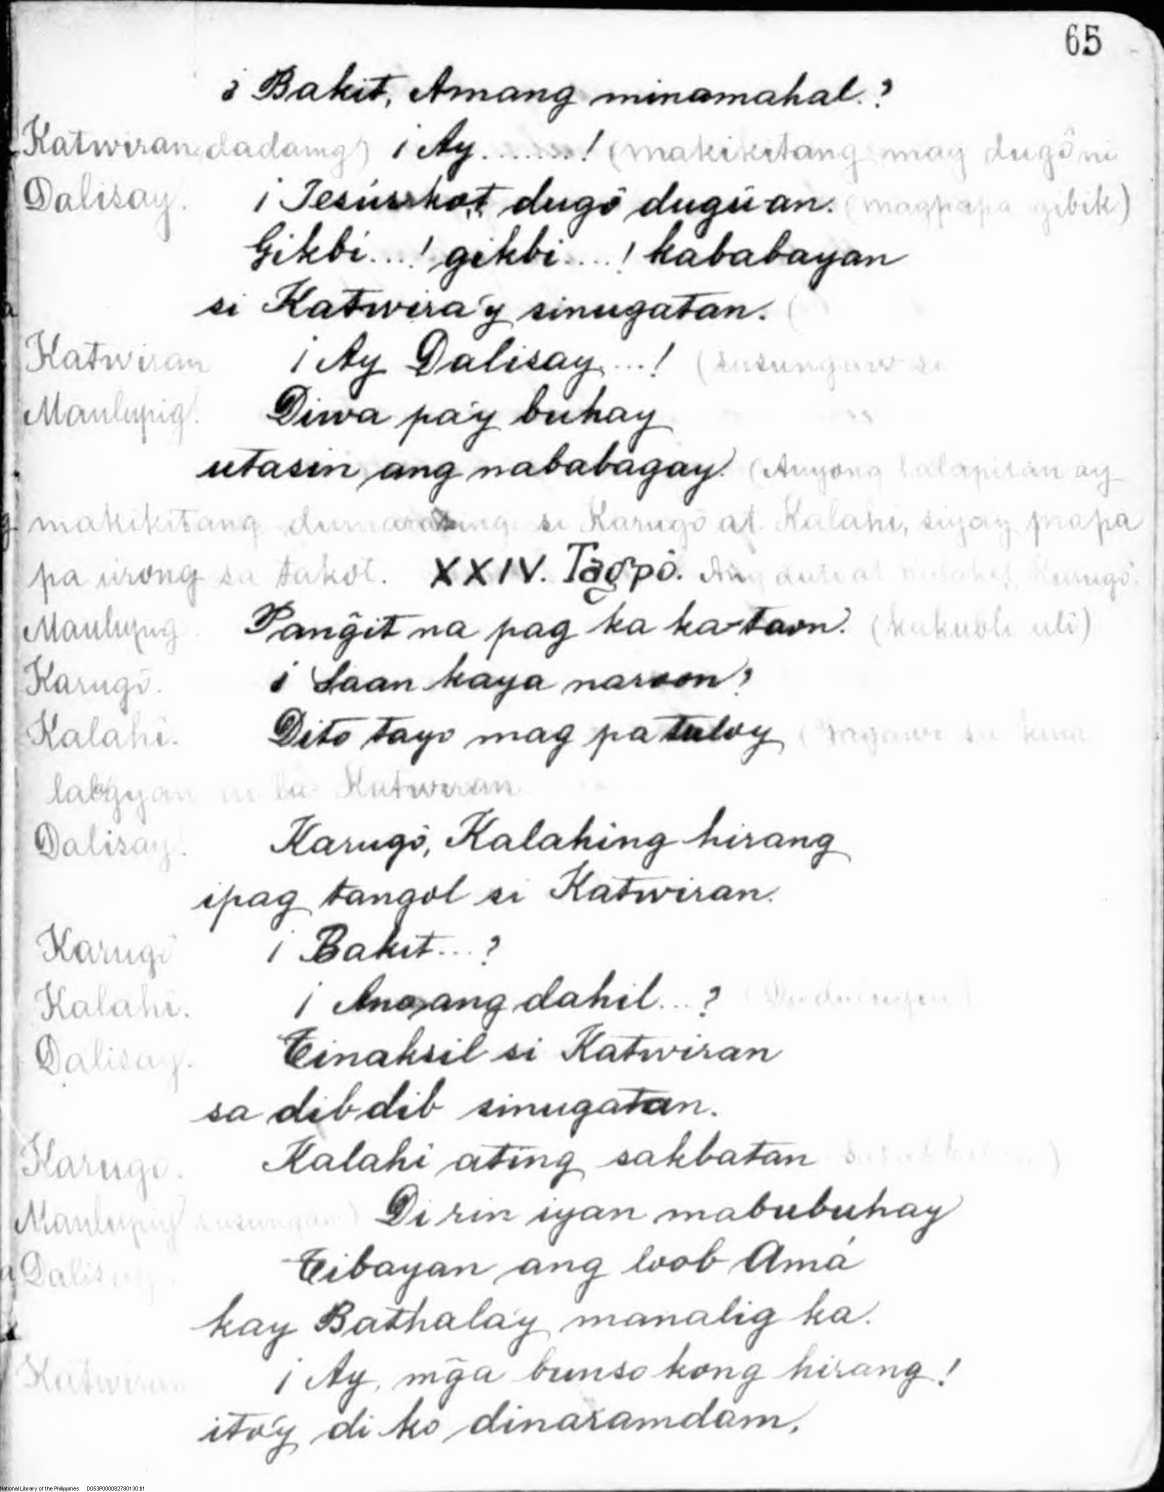 65
¿ Bakit, Amang minamahal.?
Katwiran dadaing) ¡ Ay........! (makikitang may dugô ni
Dalisay. ¡ Jesús dugô dugúan. (magpapa gibik)
Gikbi....! gikbi....! kababayan
si Katwira'y sinugatan.
Katwiran ¡ Ay Dalisay....! (susungaw si
Maulupig. Diwa pa'y buhay
utasin ang nababagay. (Anyong lalapitan ay
makikitang dumarating si Karugô at Kalahi, siya'y mapa
pa urong sa takot. XXIV. Tagpô. Ang dati at Kalahi, Karugô.
Maulupig Pang̃it na pag ka ka-taon. (kukubli uli)
Karugô. ¿ Saan kaya naroon?
Kalahi. Dito tayo mag patuloy (
Katwiran
Dalisay. Karugô, Kalahing hirang
ipag tangol si Katwiran.
Karugô ¡ Bakit...?
Kalahi. ¡ Ano ang dahil...?
Dalisay. Tinaksil si Katwiran
sa dibdib sinugatan.
Karugo. Kalahi ating sakbatan
Maulupig susungaw) Di rin iyan mabubuhay
Dalisay Tibayan ang loob Amá
kay Bathala'y manalig ka.
Katwiran ¡ Ay, mg̃a bunso kong hirang!
ito'y di ko dinaramdam.
National Library of the Philippines